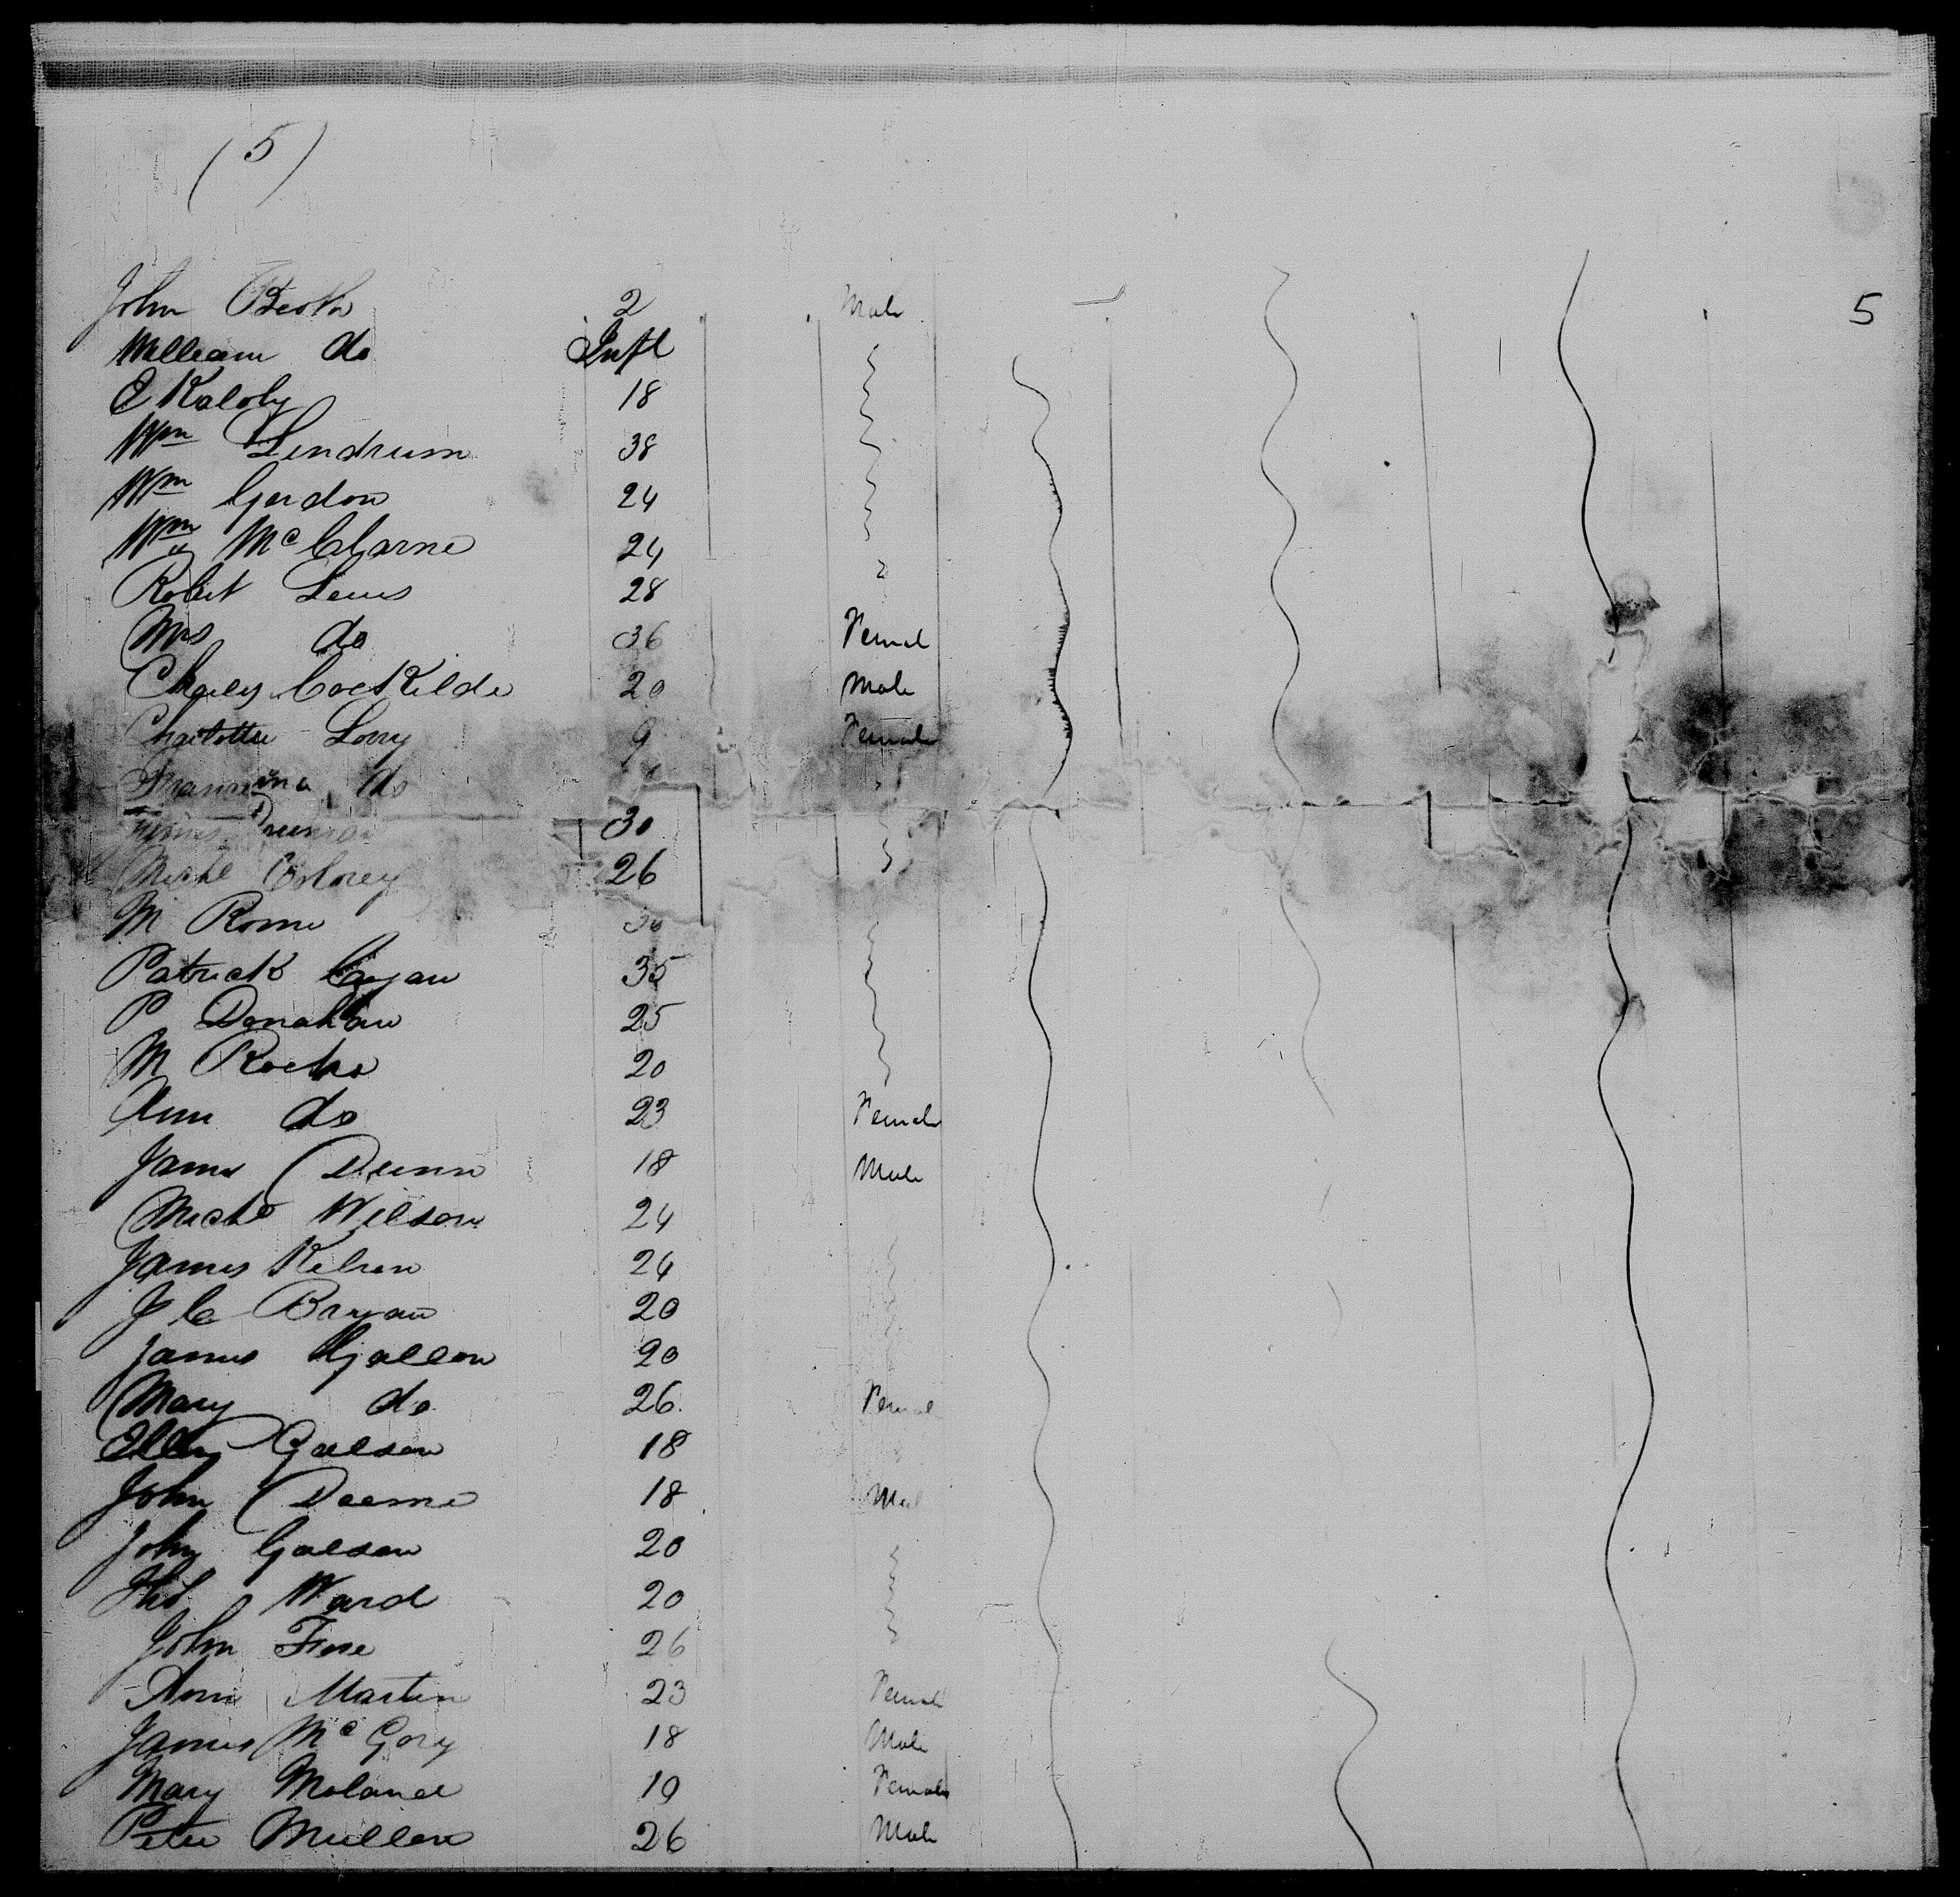 (5)
John Beoth 2 Male 5
William do Inft
E Kaloby 18
Wm Lendrum 38
Wm Gordon 24
Wm McClarne 24
Robert Lewis 28
Mrs do 36 Femal
Charles Cockilde 20 Male
Charlotte Lorry 9 Female
do
James 30
Michl 26
M Rome 30
Patrick Cryan 35
P Donahaw 25
M Roche 20
Ann do 23 Female
James Dunn 18 Male
Michl Wilson 24
James Kelren 24
J C Bryan 20
James Gallon 20
Mary do 26 Female
Ellen Galson 18
John Deeme 18 Mal
John Galson 20
Ths Ward 20
John Fine 26
Ann Martin 23 Female
James McGory 18 Male
Mary Moland 19 Female
Peter Mullen 26 Male